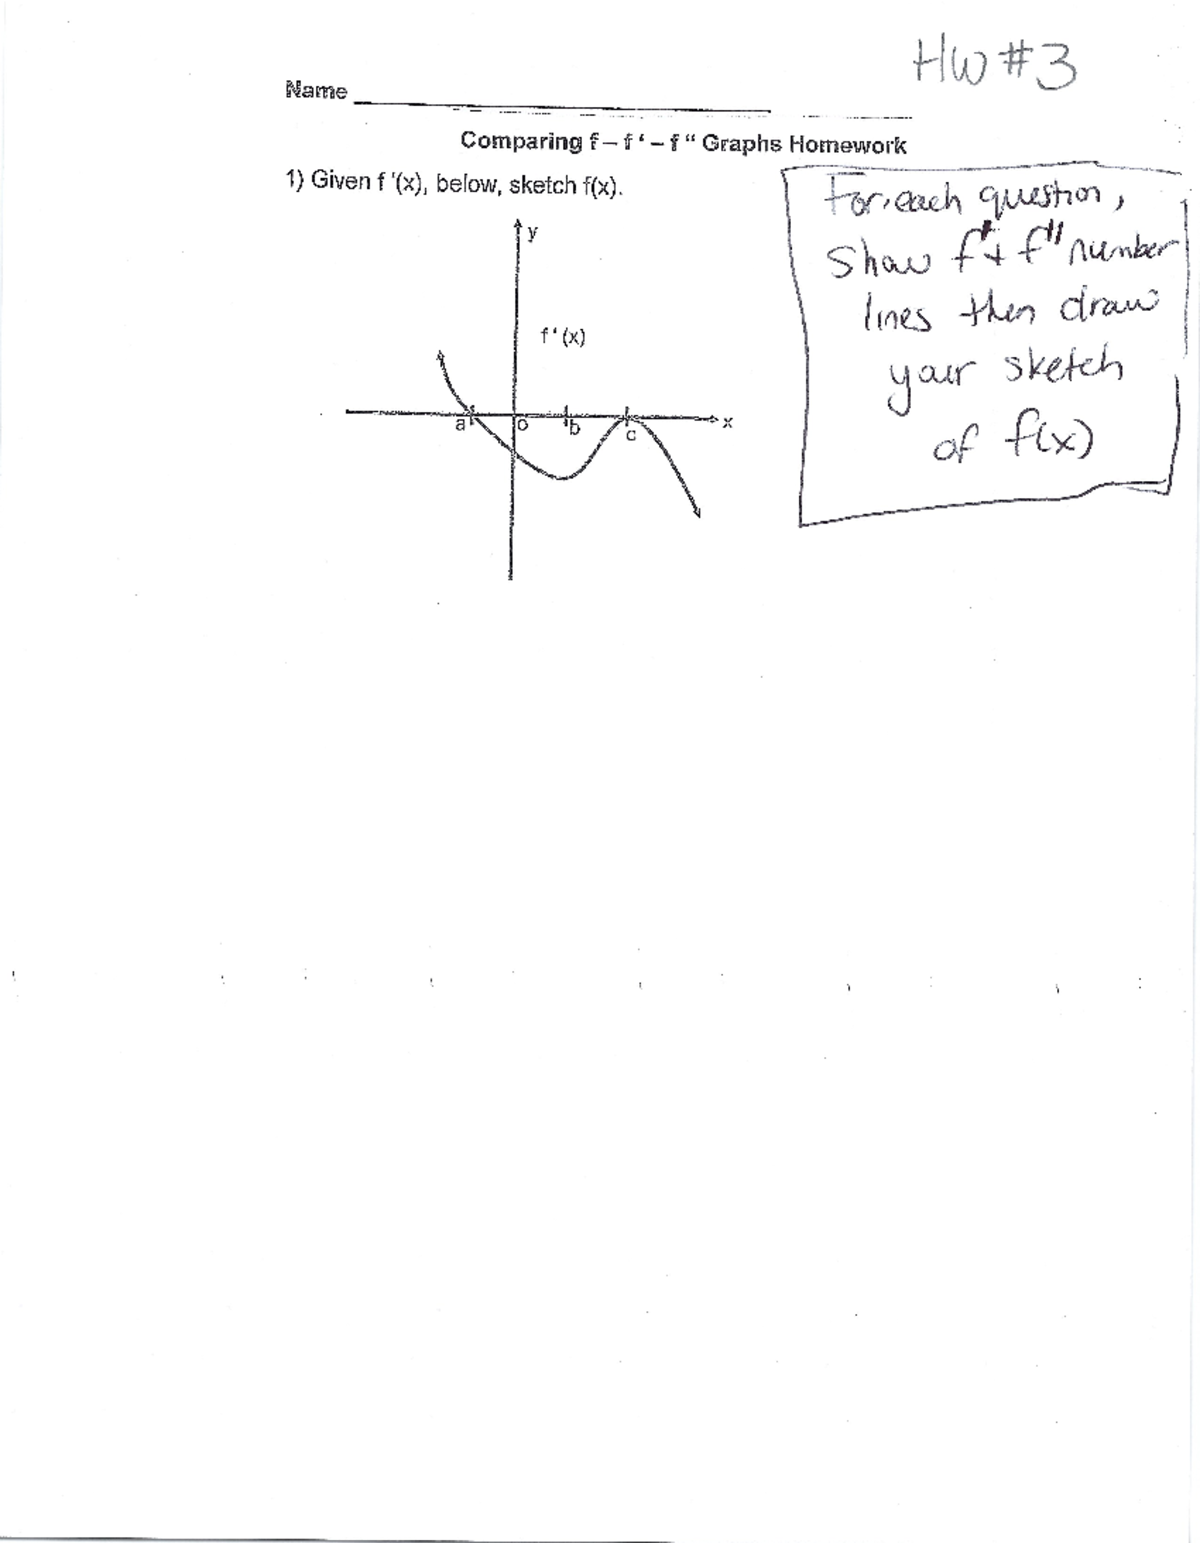 HW #3
Name
Comparing f – f ' – f " Graphs Homework
1) Given f '(x), below, sketch f(x).
For each question,
show f' + f" number
lines then draw
your sketch
of f(x)
y
f ' (x)
a o b c x